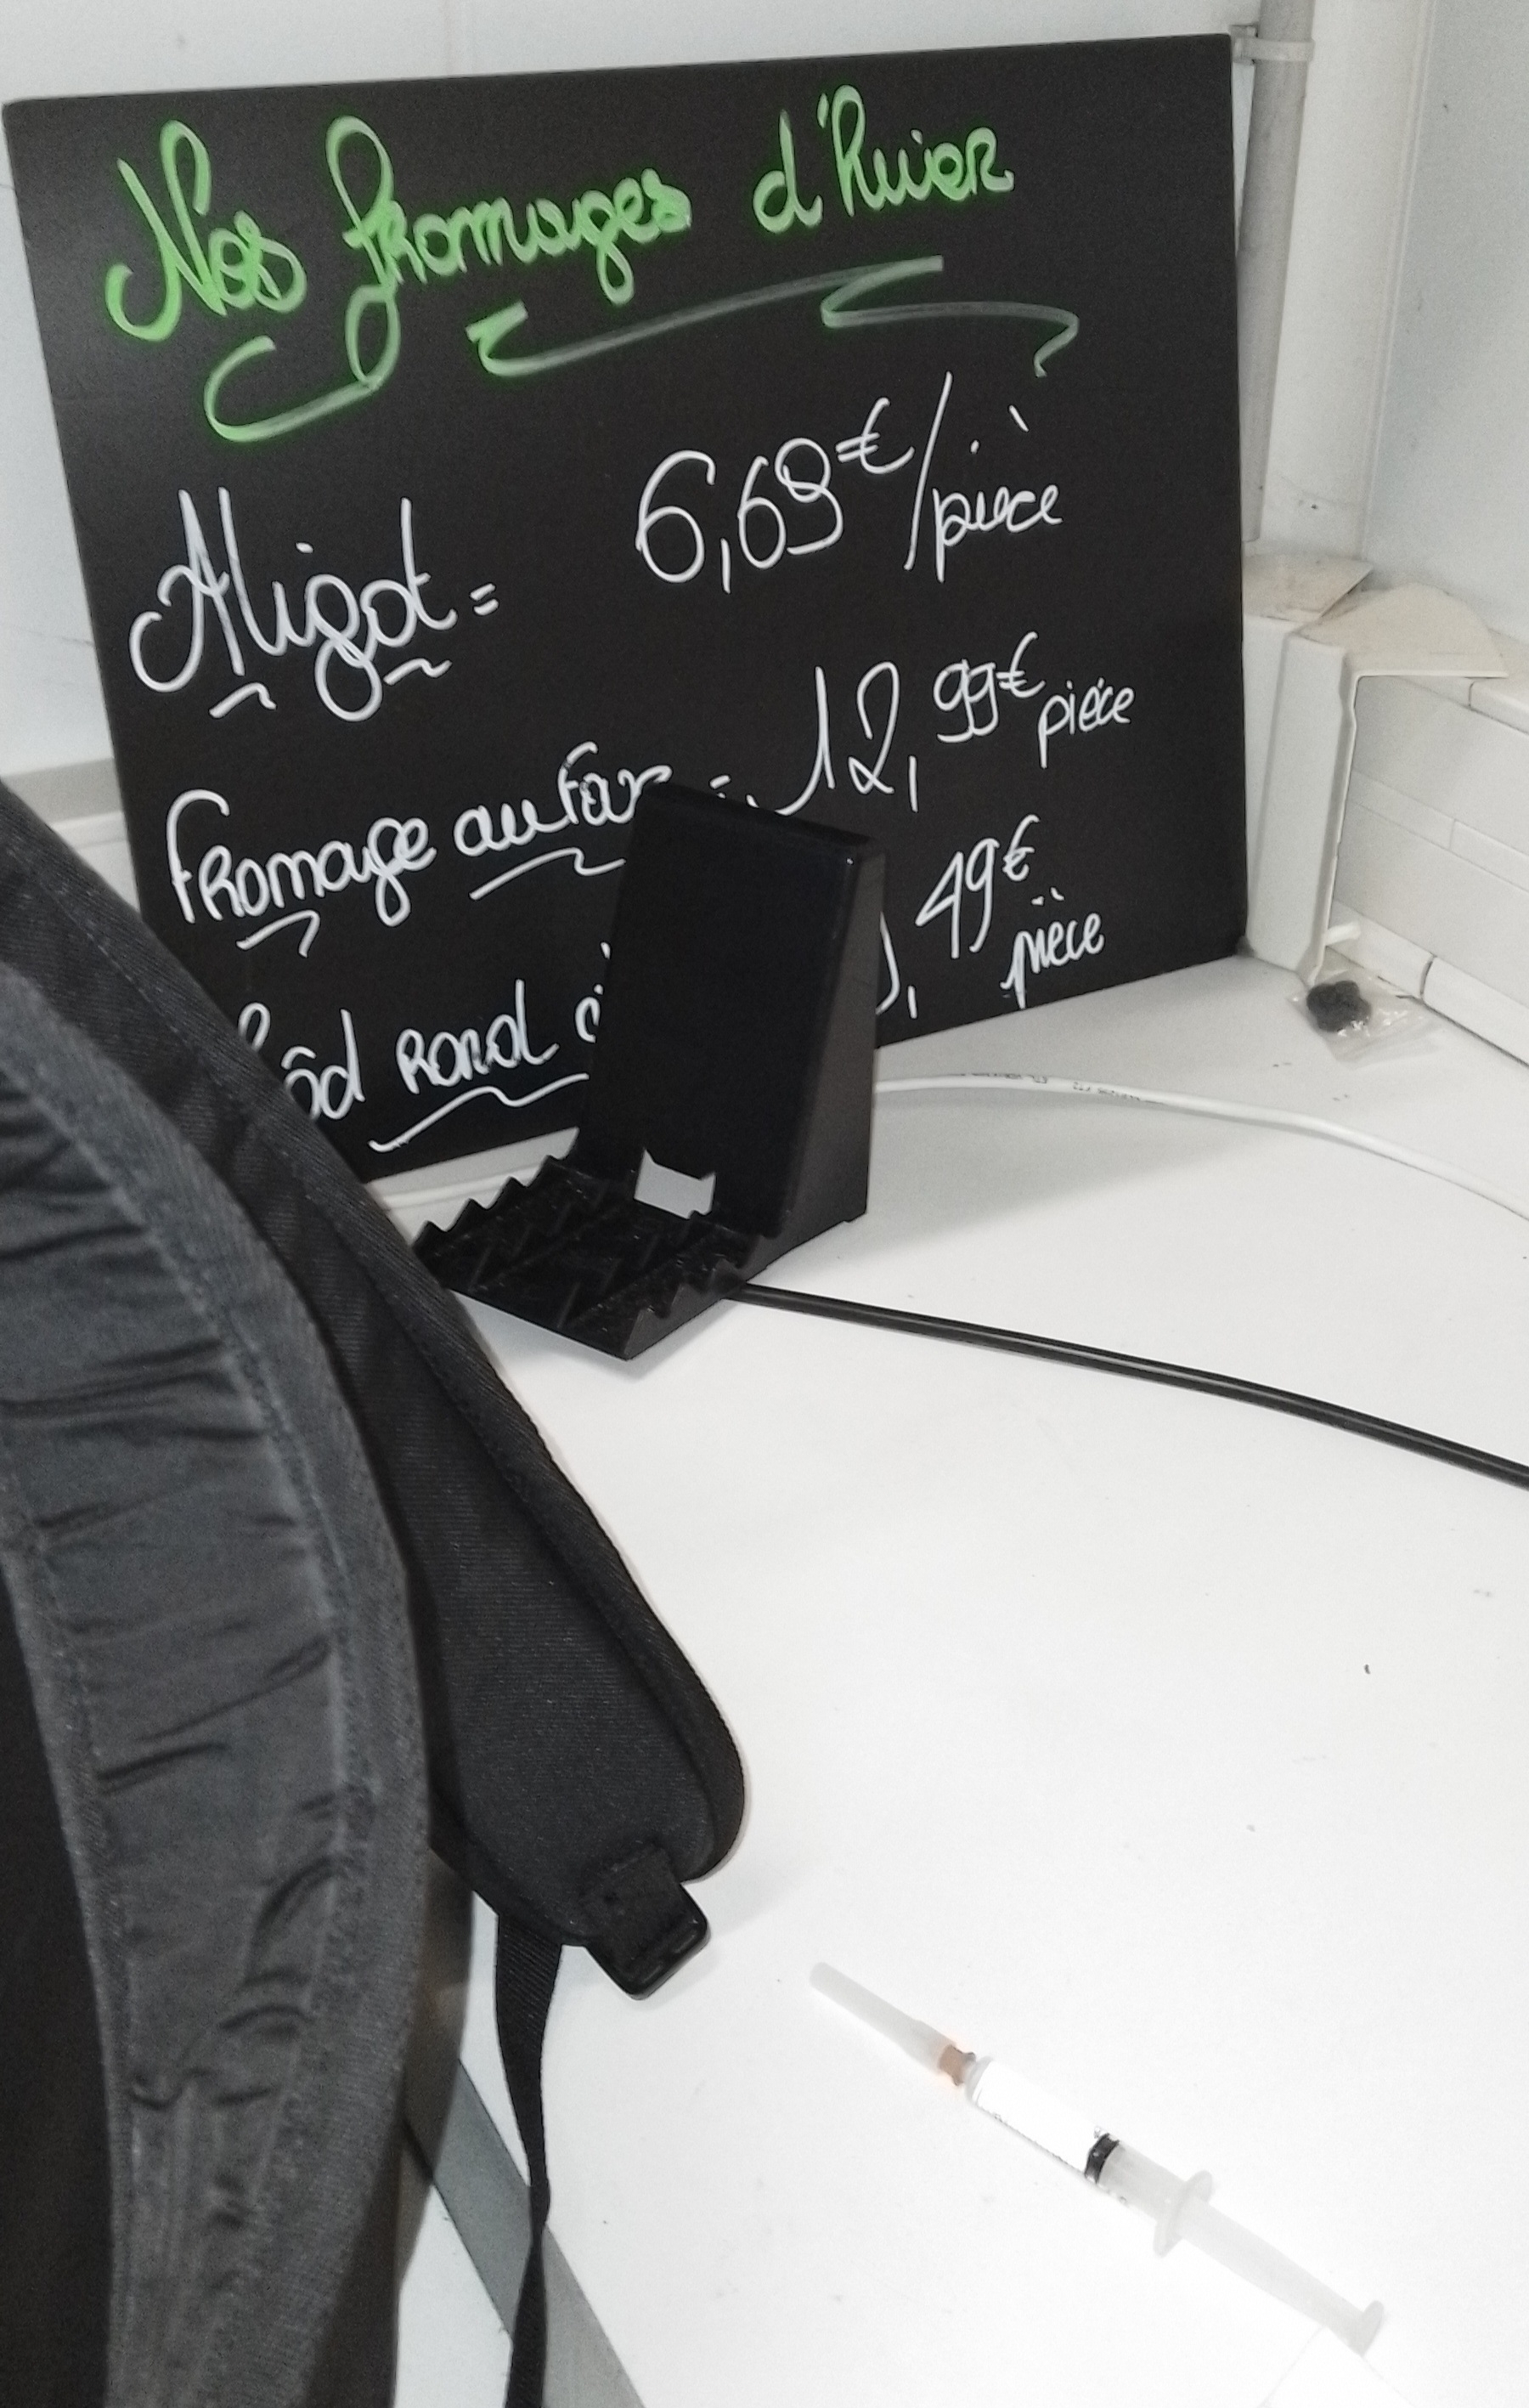 Nos fromages d'hiver
Aligot = 6,69€/pièce
Fromage au four = 12,99€ pièce
rond 49€ pièce